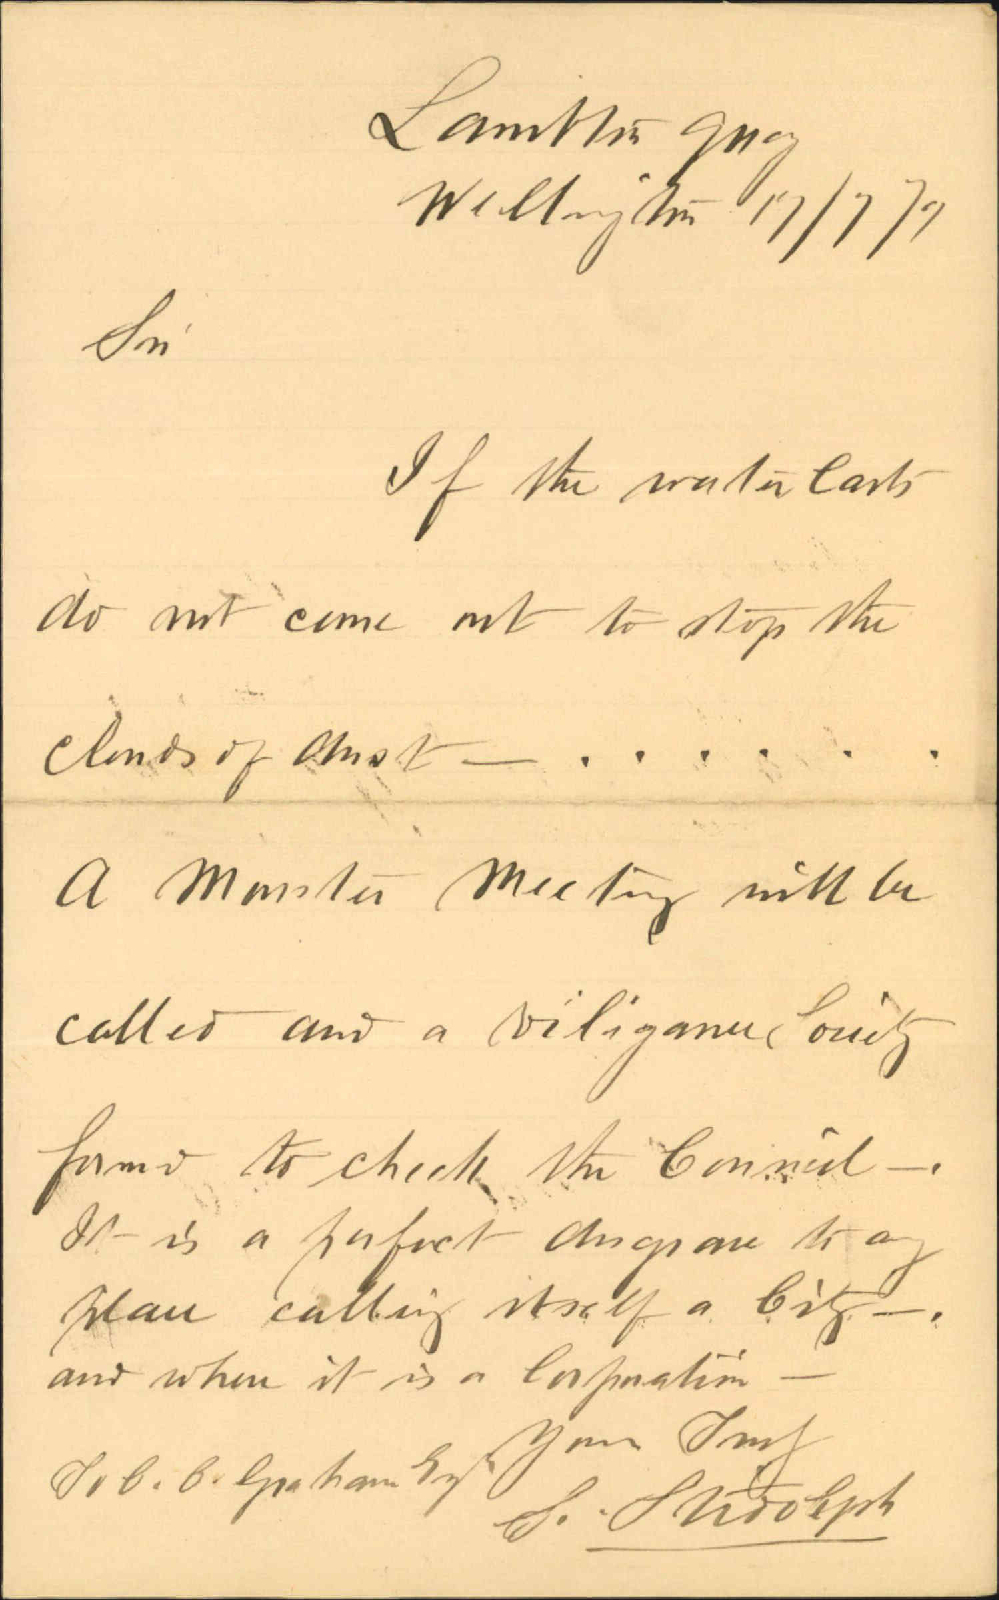 Lambton Quay
Wellington 17/7/79
Sir
If the water Carts
do not come out to stop the
clouds of dust — . . . . . .
A Monster Meeting will be
called and a viliganee Society
formd to check the Council —.
It is a perfect disgrace to any
place calling itself a City —.
and where it is a Corporation —
Yours Truly
To C. C. Graham Esq
S.